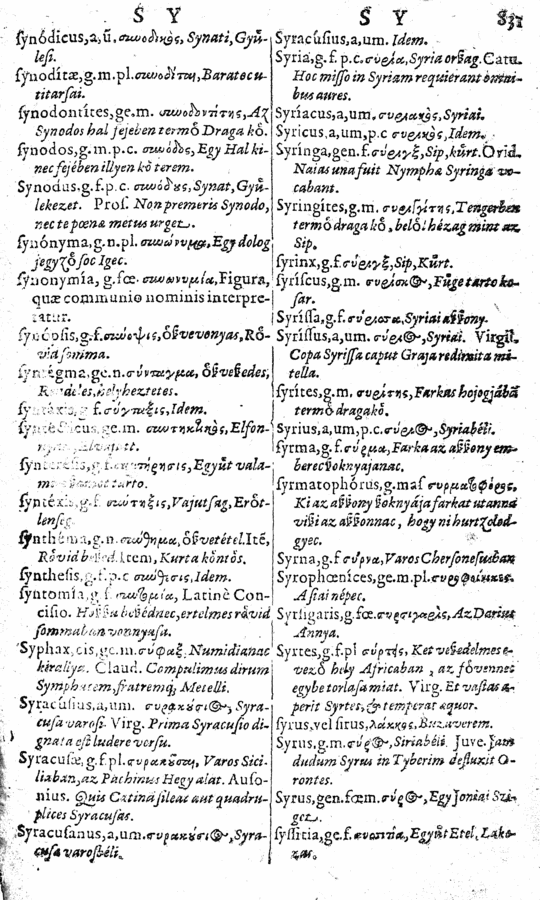 S Y
S Y
831
synódicus,a,ũ. συνοδικὸς, Synati, Gyűlesi.
synodítæ,g.m.pl. συνοδίται, Baratocutitarsai.
synodontítes,ge.m. συνοδοντίτης, Az
Synodos hal fejeben termő Draga kő.
synodos,g.m.p.c. συνόδος, Egy Hal kinec
fejében illyen kő terem.
Synodus.g.f.p.c. σύνοδος, Synat, Gyűlekezet.
Pros. Non premeris Synodo,
nec te pœnæ metus urget.
synónyma,g.n.pl. συνώνυμα, Egy dolog
jegyző soc Igec.
synonymía, g.fœ. συνωνυμία, Figura,
quæ communio nominis interpretatur.
synópsis, g.f. σύνοψις,
via somima.
syntágma,ge.n. σύνταγμα,
helyheztetes.
g.f. σύνταξις, Idem.
ge.m.
g.f.
syntéxis,g.f. σύντηξις, Vajutsag, Erőtlenség.
synthéma,g.n. σύνθημα, Itē,
Rővid Item, Kurta kőntős.
synthesis,g.f.p.c σύνθεσις, Idem.
syntomía, g.f. συντομία, Latinè Concisio.
ertelmes rővid
sommaban vonnyasa.
Syphax,cis,ge.m. σύφαξ. Numidianac
kirallya. Claud. Compulimus dirum
Symphacem, fratremq; Metelli.
Syracúsius,a,um. συρακύσι@, Syracusa
varosi. Virg. Prima Syracusio dignata
est ludere versu.
Syracusæ,g.f.pl. συρακοῦσαι, Varos Siciliaban,
az Pachinus Hegy alat. Ausonius.
Quis Catinã sileat aut quadruplices
Syracusas.
Syracusanus,a,um. συρακύσι@, Syracusa
varosbéli.
Syracúsius,a,um. Idem.
Syria,g.f.p.c. συρία, Syria orszag. Catu.
Hoc misso in Syriam requierant omnibus
aures.
Syríacus,a,um. συριακὸς, Syriai.
Syricus.a,um,p.c συριακὸς, Idem.
Syrínga,gen.f. σύριγξ, Sip, kűrt. Ovid.
Naias una fuit Nymphæ Syringa vocabant.
Syringítes,g.m. συριγγίτης, Tengerben
termő draga kő, belől hézag mint az
Sip.
syrinx,g.f. σύριγξ, Sip, Kűrt.
syríscus,g.m. συρίσκ@, Fűge tarto kosar.
Syríssa,g.f. σύρισσα, Syriai aszszony.
Syríssus,a,um. Syriai. Virgil.
Copa Syrissa caput Graja redimita mitella.
syrítes,g.m. συρίτης, Farkas hojogjábã
termő dragakő.
Syrius,a,um,p.c. σύρι@, Syriabéli.
syrma,g.f. σύρμα, Farka az aszszony emberec
szoknyajanac.
syrmatophórus,g.mas συρματοφόρος,
Ki az aszszony szoknyája farkat utanna
viszi az aszszonnac, hogy ni hurtzolodgyec.
Syrna,g.f σύρνα, Varos Chersonesusban
Syrophœníces,ge.m.pl. συροφοίνικες,
Asiai népec.
Syrsigaris,g.fœ. συρσίγαρις, Az Darius
Annya.
Syrtes,g.f.pl σύρτης, Ket veszedelmesevező
hely Africaban, az fővennec
egybe torlasa miat. Virg. Et vastas aperit
Syrtes, & temperat æquor.
syrus,vel sirus, λάκκος, Buzaverem.
Syrus,g.m. σύρ@, Siriabéli. Juve. Jam
dudum Syrus in Tyberim defluxit Orontes.
Syrus,gen.fœm. σύρ@, Egy Joniai Sziget.
syssitia,ge.f. Egyűt Etel, Lakozas.